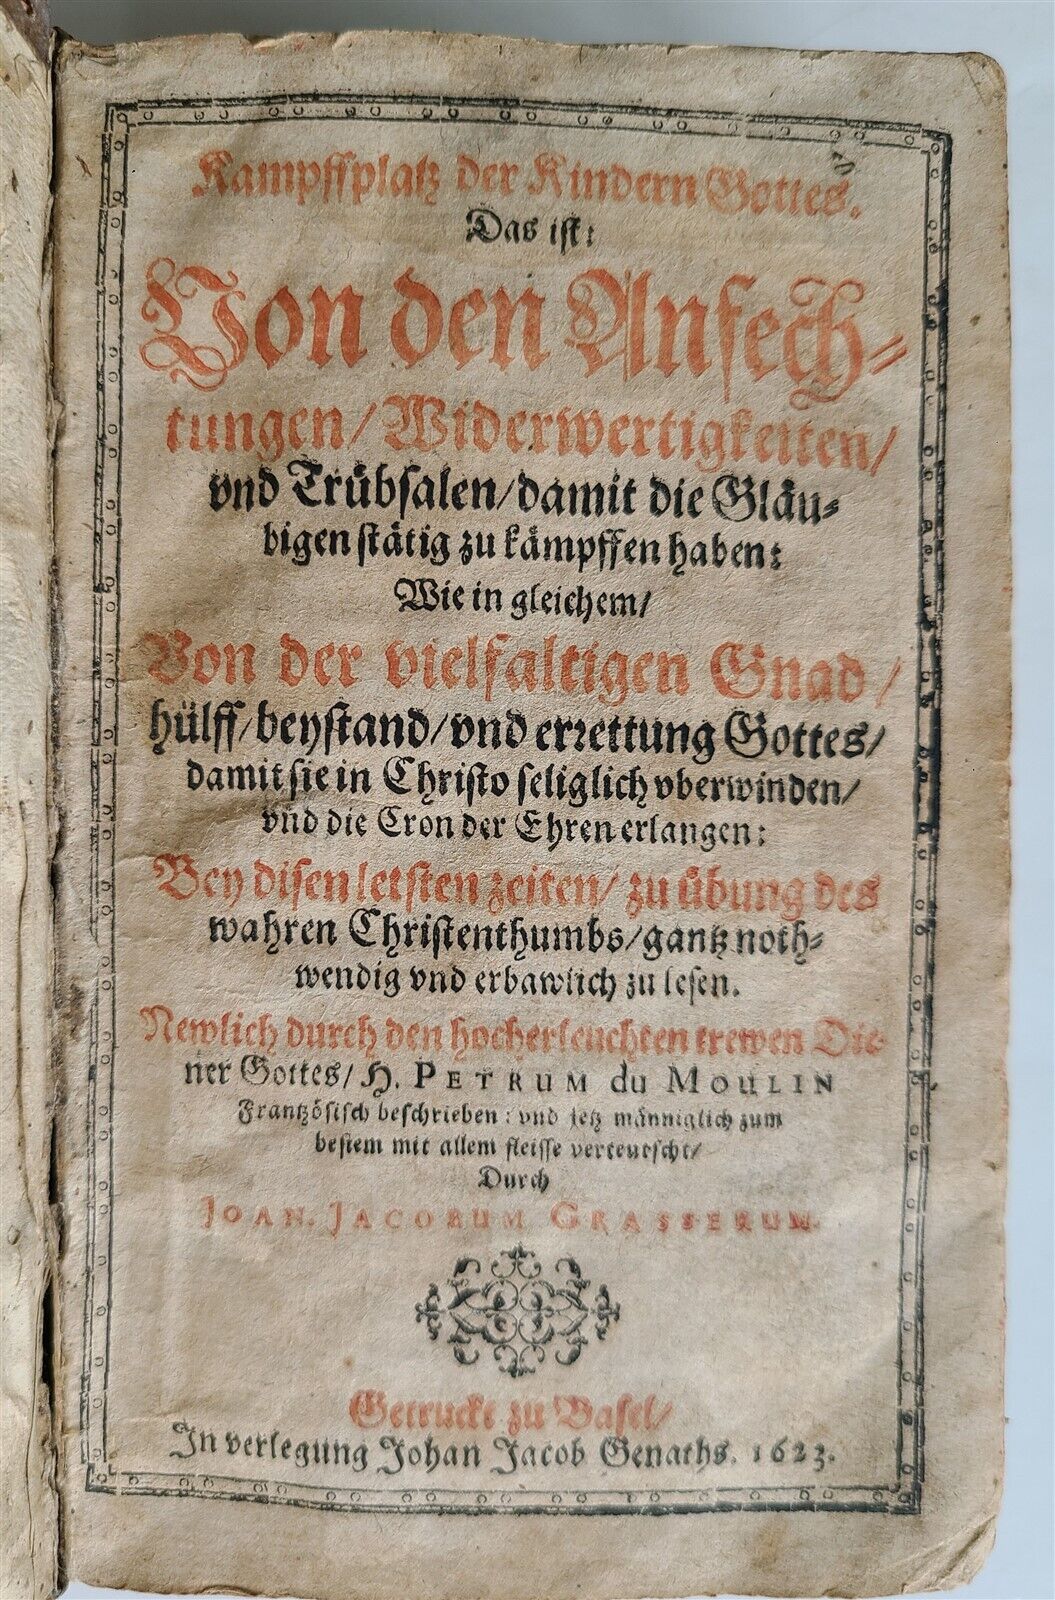 Kampffplatz der Kindern Gottes.
Das ist:
Von den Anfech-
tungen/ Widerwertigkeiten/
vnd Trübsalen/ damit die Gläu-
bigen stätig zu kämpffen haben:
Wie in gleichem/
Von der vielfaltigen Gnad/
hülff/ beystand/ vnd errettung Gottes/
damit sie in Christo seliglich vberwinden/
vnd die Cron der Ehren erlangen:
Bey disen letsten zeiten/ zu übung des
wahren Christenthumbs/ gantz noth-
wendig vnd erbawlich zu lesen.
Newlich durch den hocherleuchten trewen Die-
ner Gottes/ H. PETRUM du MOULIN
Frantzösisch beschrieben: vnd jetz männiglich zum
bestem mit allem fleisse verteutscht/
Durch
JOAN. JACOBUM GRASSERUM.
Getruckt zu Basel/
In verlegung Johan Jacob Genaths. 1623.